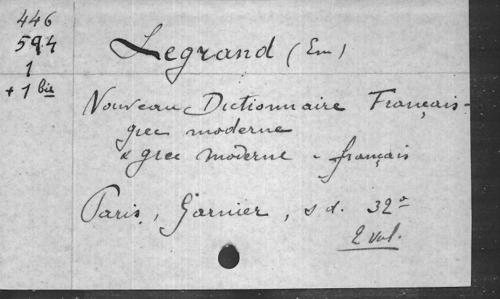 446
594
1
+ 1 bis
Legrand (Em)
Nouveau Dictionnaire Français-
grec moderne
& grec moderne - français
Paris, Garnier, s d. 32°
2 vol.